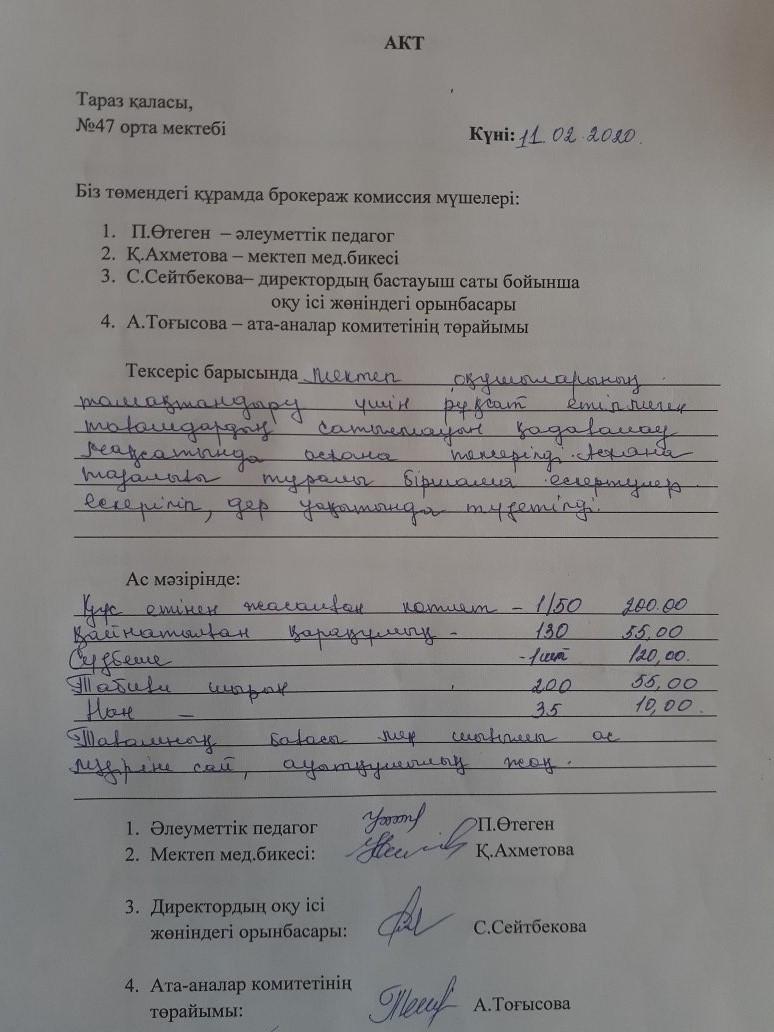 АКТ
Тараз қаласы,
№47 орта мектебі
Күні: 11.02.2020.
Біз төмендегі құрамда брокераж комиссия мүшелері:
1. П.Өтеген – әлеуметтік педагог
2. Қ.Ахметова – мектеп мед.бикесі
3. С.Сейтбекова– директордың бастауыш саты бойынша
оқу ісі жөніндегі орынбасары
4. А.Тоғысова – ата-аналар комитетінің төрайымы
Тексеріс барысында мектеп оқушыларының
тамақтандыру үшін рұқсат етілмеген
тағамдардың сатылмауын қадағалау
мақсатында асхана тексерілді. Асхана
тазалығы туралы біршама ескертулер
ескеріліп, дер уақытында түзетілді.
Ас мәзірінде:
Құс етінен жасалған котлет – 1/50 200.00
Қайнатылған қарақұмық - 130 55,00
-1шт 120,00.
Табиғи шырын 200 55,00
Нан – 35 10,00.
Тағамның бағасы мен шығымы ас
мәзіріне сай, ауытқушылық жоқ.
1. Әлеуметтік педагог П.Өтеген
2. Мектеп мед.бикесі: Қ.Ахметова
3. Директордың оқу ісі
жөніндегі орынбасары: С.Сейтбекова
4. Ата-аналар комитетінің
төрайымы: А.Тоғысова